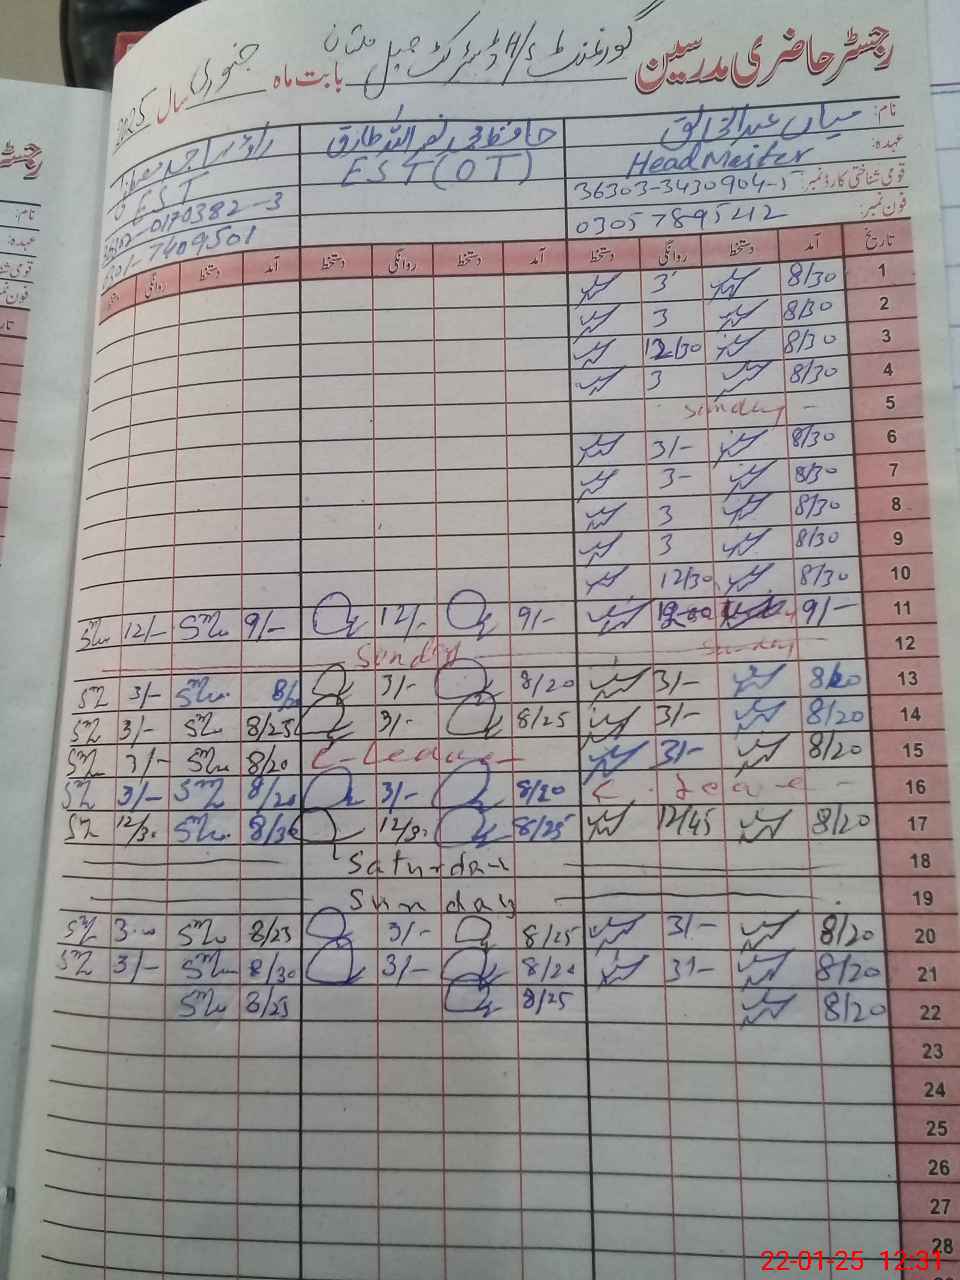 رجسٹر حاضری مدرسین گورنمنٹ ڈسٹرکٹ جیل ملتان بابت ماہ جنوری سال 2025
نام: میاں عبدالخالق حافظ محمد نصر اللہ طارق
عہدہ: Head Master EST (OT) EST
قومی شناختی کارڈ نمبر: 36303-3430904-5 0170382-3
فون نمبر: 03057895412 7409501
تاریخ آمد دستخط روانگی دستخط آمد دستخط روانگی دستخط آمد دستخط روانگی دستخط
1 8/30 3
2 8/30 3
3 8/30 12/30
4 8/30 3
5 Sunday -
6 8/30 3/-
7 8/30 3-
8 8/30 3
9 8/30 3
10 8/30 12/30
11 9/- 9/- 12/- 9/- 12/-
12 Sunday Sunday
13 8/20 3/- 8/20 3/- 3/-
14 8/20 3/- 8/25 3/- 8/25 3/-
15 8/20 3/- C-Leave- 8/20 3/-
16 C. Leave - 8/20 3/- 8/20 3/-
17 8/20 12/45 8/25 12/30 8/30 12/30
18 Saturday
19 Sunday
20 8/20 3/- 8/25 3/- 8/25 3
21 8/20 3/- 8/20 3/- 8/30 3/-
22 8/20 8/25 8/25
23
24
25
26
27
28
22-01-25 12:31